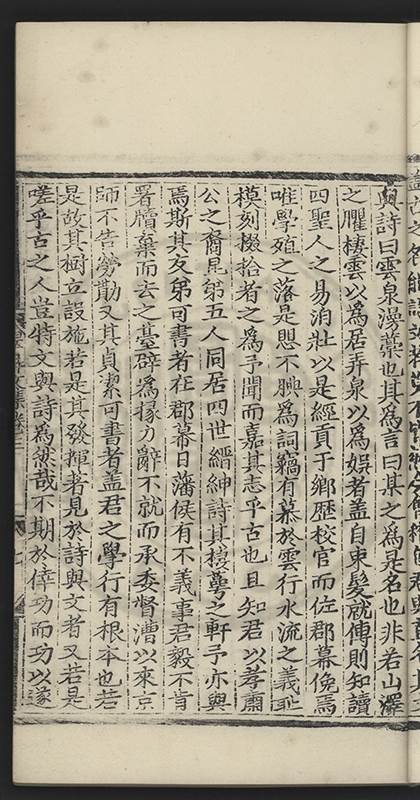 與詩曰雲泉漫藁也其為言曰某之為是名也非若山澤
之臞棲雲以為居弄泉以為娛者盖自束髮就傅則知讀
四聖人之易消壯以是經貢于鄉歷校官而佐郡幕俛焉
唯學殖之落是思不腆為詞藁有慕於雲行水流之義耻
模刻掇拾者之為予聞而嘉其志乎古也且知君以孝肅
公之裔昆弟五人同居四世縉紳詩其棣萼之軒予亦與
焉斯其友弟可書者在郡幕日藩侯有不義事君毅不肯
署牘棄而去之臺辟為掾力辭不就而承委督漕以來京
師不告勞勩又其貞潔可書者盖君之學行有根本也若
是故其樹立設施若是其發揮者見於詩與文者又若是
嗟乎古之人豈特文與詩為然哉不期於倖功而功以遂